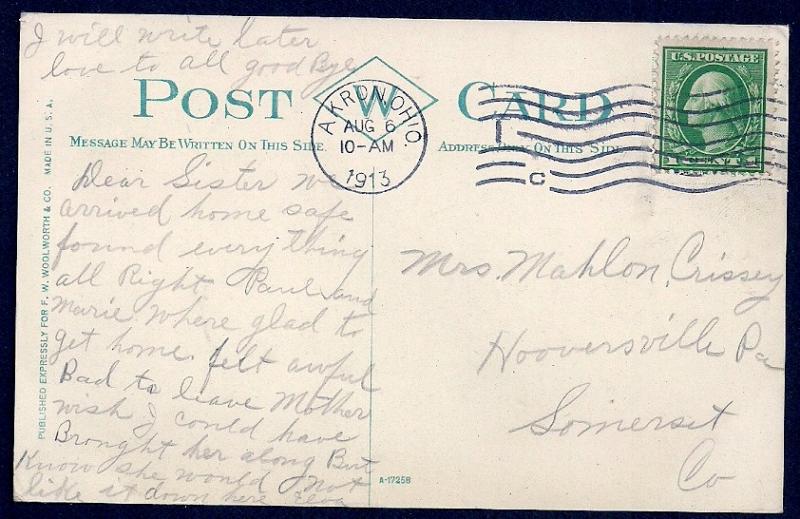 I will write later
love to all good Bye
POST W CARD
MESSAGE MAY BE WRITTEN ON THIS SIDE
ADDRESS ONLY ON THIS SIDE
AKRON, OHIO.
AUG 6
10-AM
1913
U.S. POSTAGE
Dear Sister we
arrived home safe
found everything
all Right Paul and
Marie. Where glad to
get home. felt awful
Bad to leave Mother
wish I could have
Brought her along But
Know she would not
like it down here
Mrs. Mahlon Crissey
Hooversville Pa
Somerset
Co
PUBLISHED EXPRESSLY FOR F. W. WOOLWORTH & CO. MADE IN U. S. A.
A-17258